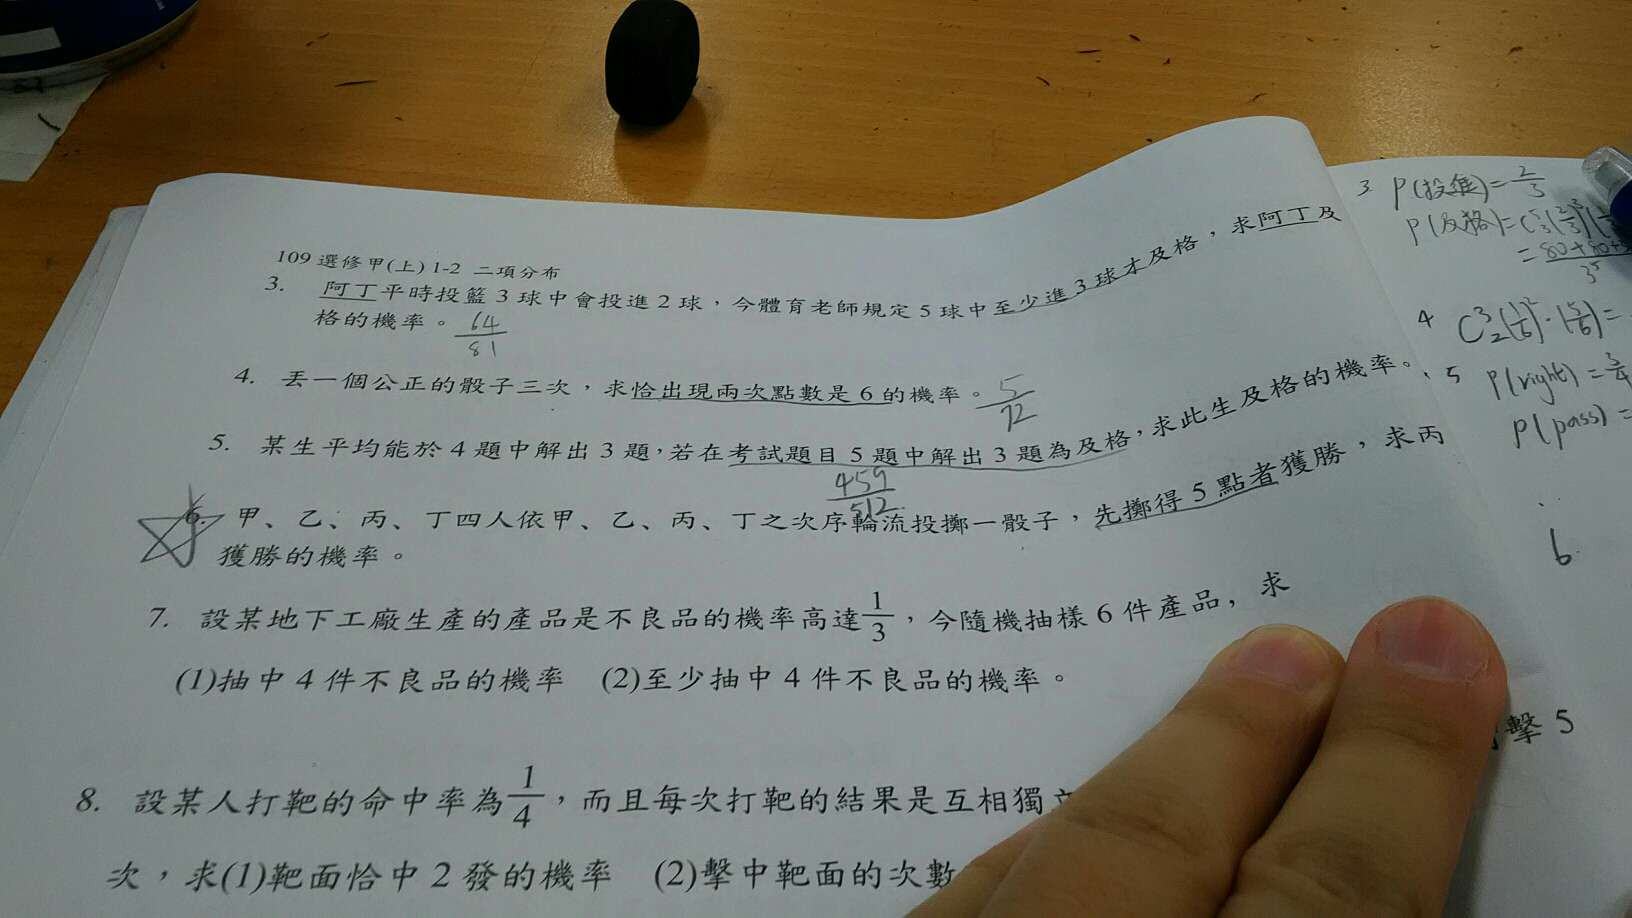 109 選修甲(上) 1-2 二項分布
3. 阿丁平時投籃 3 球中會投進 2 球，今體育老師規定 5 球中至少進 3 球才及格，求阿丁及
格的機率。 64/81
4. 丟一個公正的骰子三次，求恰出現兩次點數是 6 的機率。 5/72
5. 某生平均能於 4 題中解出 3 題，若在考試題目 5 題中解出 3 題為及格，求此生及格的機率。
459/512
6. 甲、乙、丙、丁四人依甲、乙、丙、丁之次序輪流投擲一骰子，先擲得 5 點者獲勝，求丙
獲勝的機率。
7. 設某地下工廠生產的產品是不良品的機率高達 1/3，今隨機抽樣 6 件產品，求
(1)抽中 4 件不良品的機率 (2)至少抽中 4 件不良品的機率。
8. 設某人打靶的命中率為 1/4，而且每次打靶的結果是互相獨
擊 5
次，求(1)靶面恰中 2 發的機率 (2)擊中靶面的次數
3. P(投進)=2/3
P(及格)=C
4 C³₂(1/6)²·(5/6)=
5 P(right)=3/4
P(pass)=
6.